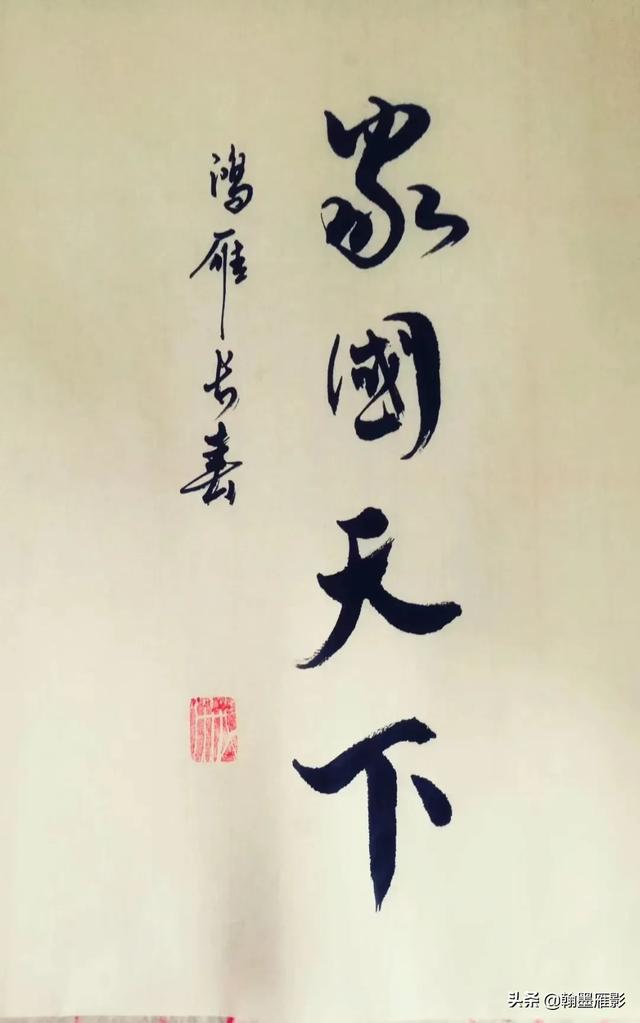 家國天下
鴻雁长春
头条 @翰墨雁影